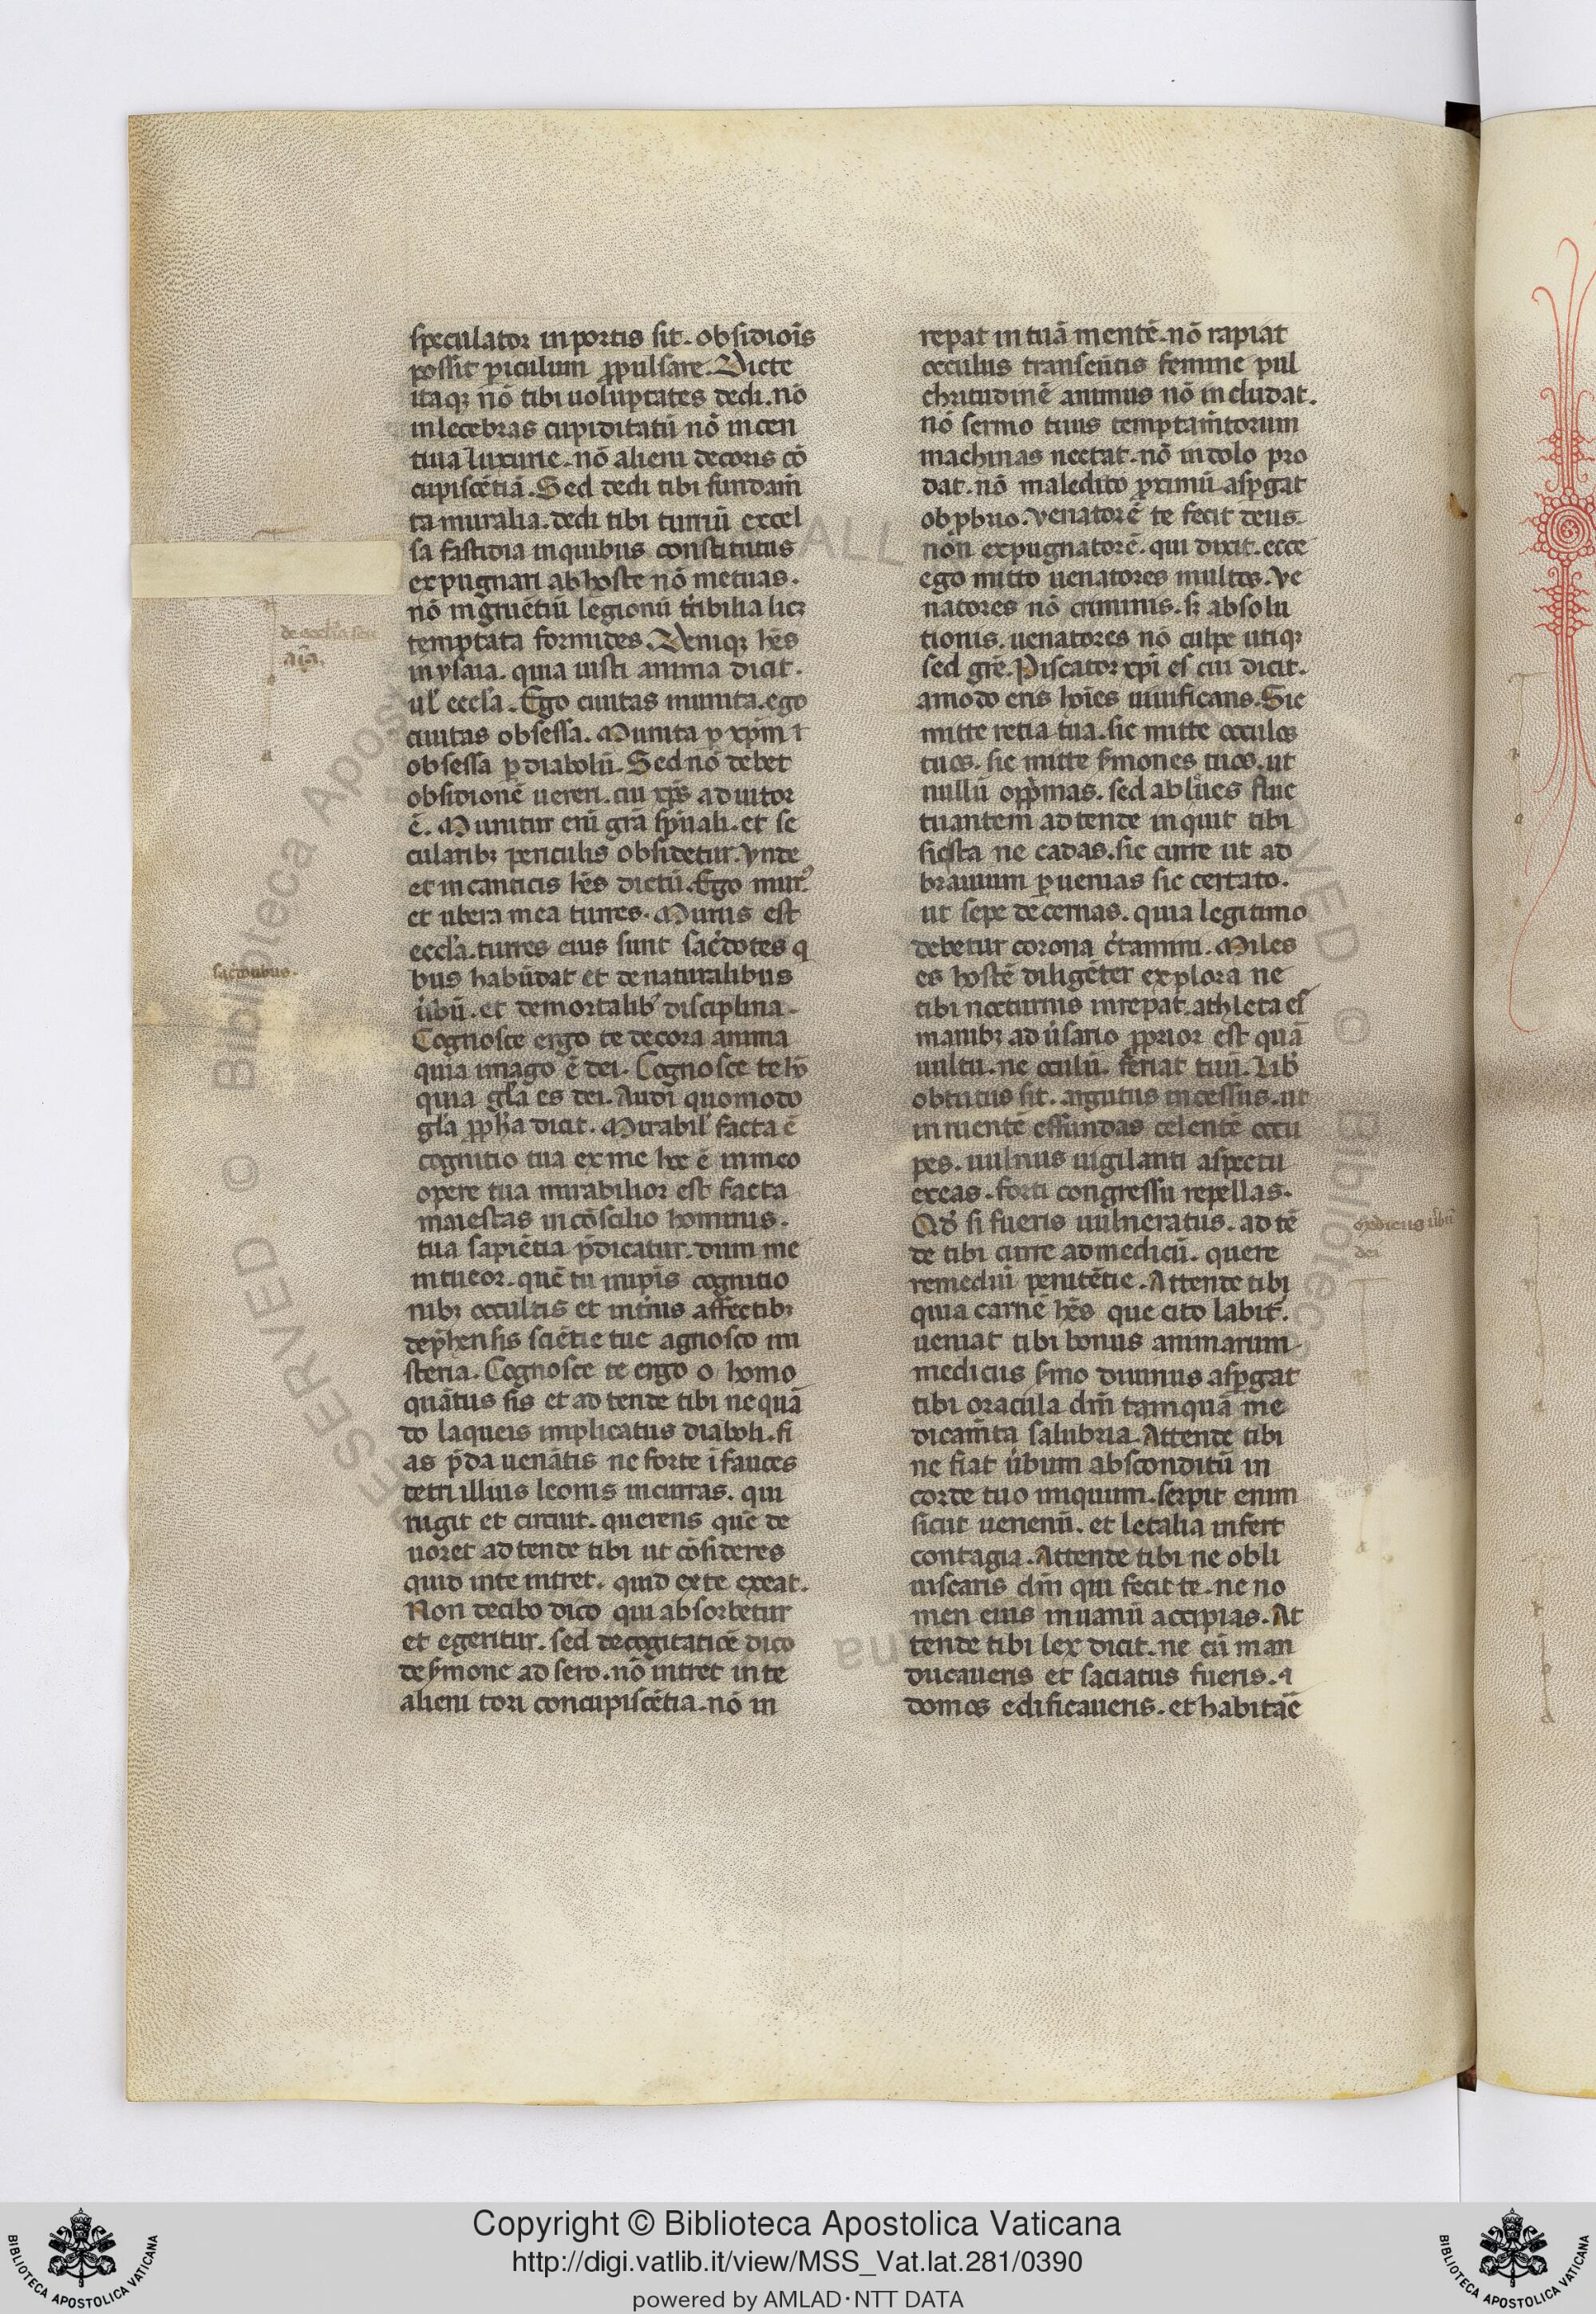 speculator in portis sit. obsidiōis
possit ꝑiculum ꝓpulsare. Dicte
itaqꝫ nō tibi uoluptates dedi. nō
inlecebras cupiditatū nō incen
tiua luxurie. nō alieni decoris cō
cupiscētiā. Sed dedi tibi fundam̄
ta muralia. dedi tibi turriū excel
sa fastidia in quibus constitutus
expugnari ab hoste nō metuas.
nō ingruētiū legionū t̄ribilia licꝫ
temptata formides. Deniqꝫ hēs
in ysaia. quia iusti anima dicit.
ul' eccl'a. Ego ciuitas munita. ego
ciuitas obsessa. Munita ꝑ xp̄m ⁊
obsessa ꝑ diabolū. Sed nō debet
obsidionē uereri. cui xp̄s adiutor
ē. Munitur eni grā sp̄uali. et se
cularibꝫ periculis obsidetur. Vnde
et in canticis hēs dictū. Ego mur᷒
et ubera mea turres. Murus est
eccl'a. turres eius sunt sac̄dotes q
bus habūdat et de naturalibus
ūbū. et de mortalib᷒ disciplina.
Cognosce ergo te decora anima
quia imago ē dei. Cognosce te hō
quia gl'a es dei. Audi quomodo
gl'a ꝓph'a dicit. Mirabil' facta ē
cognitio tua ex me hoc ē in meo
opere tua mirabilior est facta
maiestas in cōscilio hominis.
tua sapiētia p̄dicatur. dum me
intueor. quē tu in ip̄is cognitio
nibꝫ occultis et int̄nis affectibꝫ
dep̄hensis sciētie tue agnosco mi
steria. Cognosce te ergo o homo
quātus sis et ad tende tibi ne quā
do laqueis implicatus diaboli. fi
as p̄da uenātis ne forte ī fauces
tetri illius leonis incurras. qui
rugit et circuit. querens quē de
uoret ad tende tibi ut cōsideres
quid in te intret. quid ex te exeat.
Non de cibo dico qui absorbetur
et egeritur. sed de cogitatiōe dico
de s̄mone ad sero. nō intret in te
alieni tori concupiscētia. nō in
de eccl'ia seu
aīa.
sac̄dotibus.
repat in tuā mentē. nō rapiat
occulus transeūtis femine pul
chritudinē animus nō includat.
nō sermo tuus temptam̄torum
machinas nectat. nō in dolo pro
dat. nō maledicto ꝓximū asꝑgat
obꝓbrio. venatorē te fecit deus
non expugnatorē. qui dixit. ecce
ego mitto uenatores multos. Ve
natores nō criminis. sꝫ absolu
tionis. uenatores nō culpe utiqꝫ
sed grē. Piscator xp̄i es cui dicit.
amodo eris hoīes uiuificans. Sic
mitte retia tua. sic mitte occulos
tuos. sic mitte s̄mones tuos. ut
nullū opp̄mas. sed abl'ues fluc
tuantem ad tende inquit tibi
si&sta ne cadas. sic curre ut ad
brauium ꝑuenias sic certato.
ut sepe decernas. quia legitimo
debetur corona c̄tamini. Miles
es hostē diligēter explora ne
tibi nocturnis inrepat. athleta es
manibꝫ ad ūsario ꝓprior est quā
uultu. ne oculū feriat tuū. Lib̄
obtutus sit. argutus incessus. ut
inruentē effundas celentē occu
pes. uulnus uigilanti aspectu
exeas. forti congressu repellas.
Qd̄ si fueris uulneratus. ad tē
de tibi curre ad medicū. quere
remediū penitētie. Attende tibi
quia carnē hēs que cito labit᷒.
ueniat tibi bonus animarum
medicus s̄mo diuinus asꝑgat
tibi oracula dn̄i tamquā me
dicam̄ta salubria. Attende tibi
ne fiat ūbum absconditū in
corde tuo iniquum. serpit enim
sicut uenenū. et letalia infert
contagia. Attende tibi ne obli
uiscaris dn̄i qui fecit te. ne no
men eius in uanū accipias. At
tende tibi lex dicit. ne cū man
ducaueris et saciatus fueris. ⁊
domos edificaueris. et habitāe
medicus ūbū
dei
Copyright © Biblioteca Apostolica Vaticana
http://digi.vatlib.it/view/MSS_Vat.lat.281/0390
powered by AMLAD·NTT DATA
BIBLIOTECA APOSTOLICA VATICANA
BIBLIOTECA APOSTOLICA VATICANA